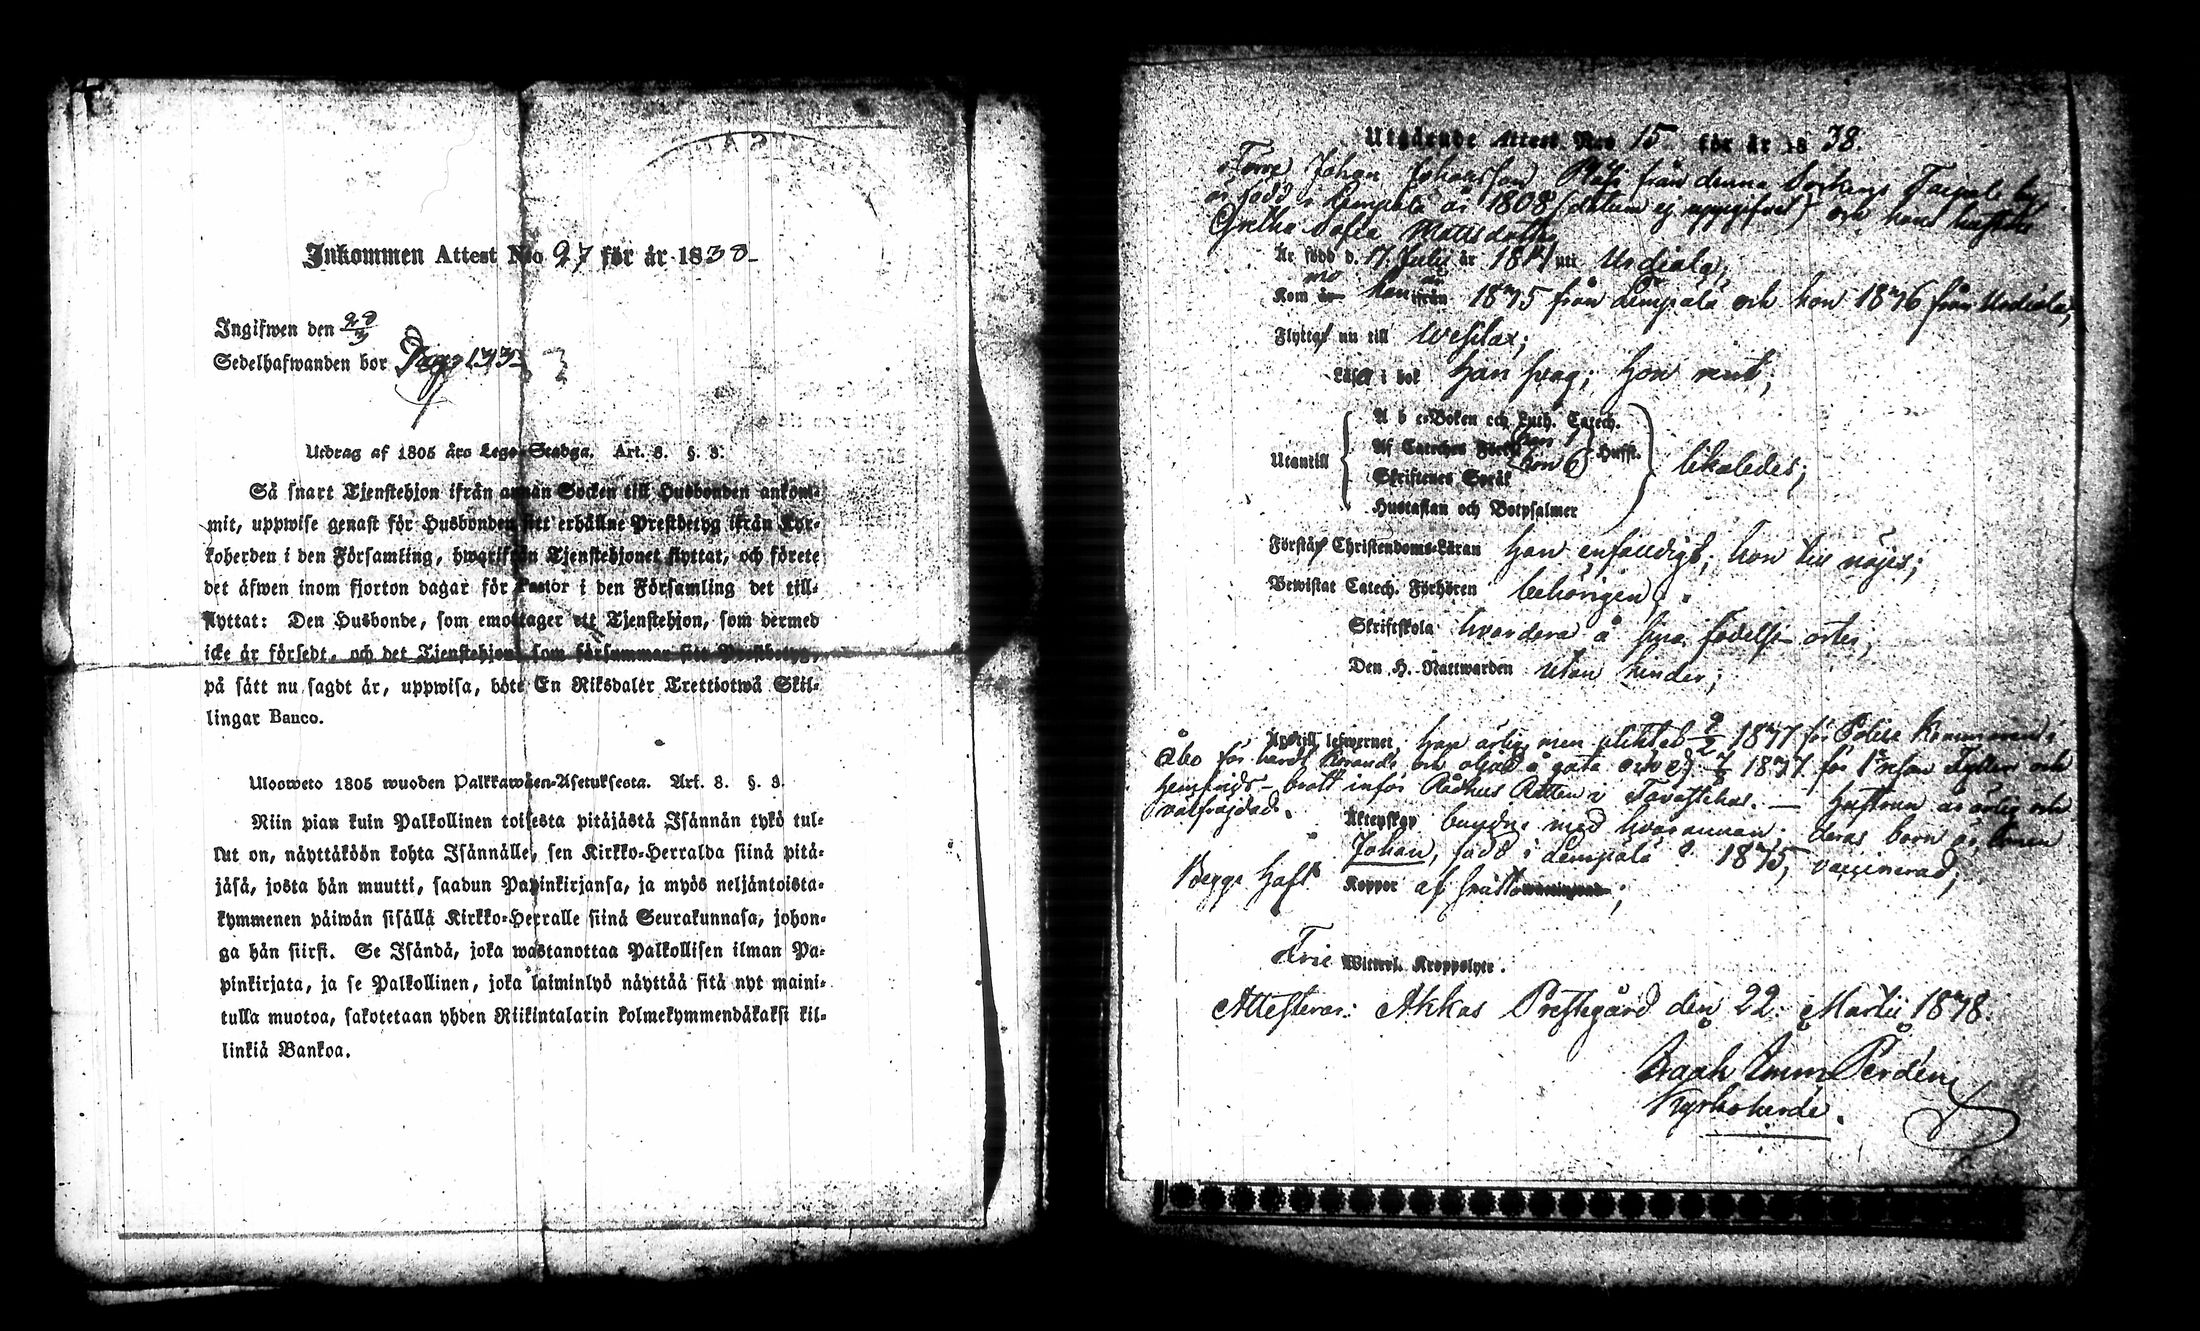 Inkommen Attest No 27 för år 1838
Ingifwen den 28/3
Sedelhafwanden bor Pag. 133
Utdrag af 1805 års Lego-Stadga. Art. 8. §. 3.
Så snart Tjenstehjon ifrån annan Socken till Husbonden ankom-
mit, uppwise genast för Husbonden sitt erhållne Prestbetyg ifrån Kyr-
koherden i den Församling, hwarifrån Tjenstehjonet flyttat, och förete
det äfwen inom fjorton dagar för Pastor i den Församling det till-
flyttat: Den Husbonde, som emottager ett Tjenstehjon, som dermed
icke är försedt, och det Tjenstehjon som försummar sitt Prestbetyg,
på sätt nu sagdt är, uppwisa, böte En Riksdaler Trettiotwå Skil-
lingar Banco.
Ulosweto 1805 wuoden Palkkawäen-Asetuksesta. Art. 8. §. 3.
Niin pian kuin Palkollinen toisesta pitäjästä Isännän tykö tul-
lut on, näyttäköön kohta Isännälle, sen Kirkko-Herralda siinä pitä-
jäsä, josta hän muutti, saadun Papinkirjansa, ja myös neljäntoista-
kymmenen päiwän sisällä Kirkko-Herralle siinä Seurakunnasa, johon-
ga hän siirsi. Se Isändä, joka wastanottaa Palkollisen ilman Pa-
pinkirjata, ja se Palkollinen, joka laiminlyö näyttää sitä nyt maini-
tulla muotoa, sakotetaan yhden Riikintalarin kolmekymmendäkaksi kil-
linkiä Bankoa.
Utgående Attest Nro 15 för år 1838.
Torp. Johan Johansson från denna Sockens by,
är född i Lempälä år 1808 (datum ej uppgifvet) och hans hustru
Gretha Sofia Mattsdotter
Är född d. 17 Julii år 18 uti Urdiala,
Kom han från 1835 från Lempälä och hon 1836 från Urdiala;
Flyttar nu till Wesilax;
Läsa i bok han svag; hon rent;
A b c-Boken och Luth. Catech.
Af Catechese Förkl. han 1 hon 6 Hufst.
Utantill likaledes;
Skriftenes Språk
Hustaflan och Botpsalmer
Förstår Christendoms-Läran han enfaldigt; hon till nöjes;
Bewistat Catech. Förhören behörigen;
Skriftskola hvardera å sina födelse-orter;
Den H. Nattwarden utan hinder;
Är till lefwernet han ärlig men pliktat 9/2 1837 för Polise Kammaren i
Åbo för hårdt körande och oljud å gata och d. 1837 för 1sta resan Fylleri och
hemfrids-brott inför Rådhus Rätten i Tavastehus. — Hustrun är ärlig och
välfräjdad. Äktenskap bundne med hvarannan; deras barn är sonen
Johan, född i Lempälä 1835, vaccinerad;
Begge Haft Koppor af smitta;
Frie Witterl. Kroppslyte.
Attesterar: Akkas Prestegård den 22 Martii 1838.
Kyrkoherde.